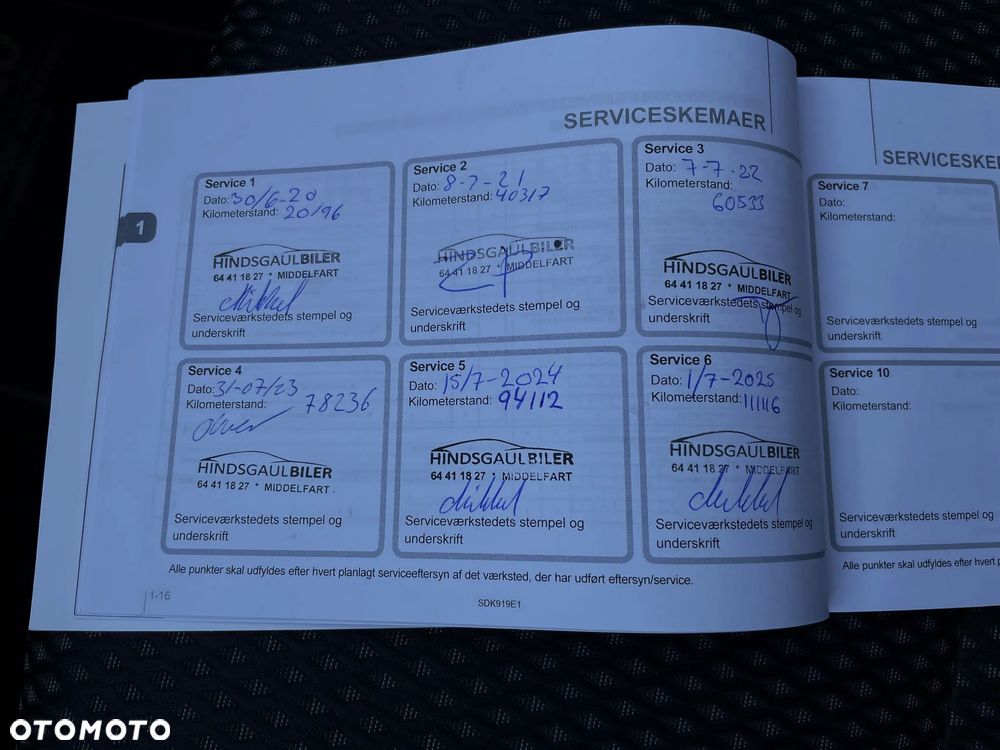 SERVICESKEMAER
Service 1
Dato: 30/6-20
Kilometerstand: 20196
HINDSGAULBILER
64 41 18 27 * MIDDELFART
Mikkel
Serviceværkstedets stempel og
underskrift
Service 2
Dato: 8-7-21
Kilometerstand: 40317
HINDSGAULBILER
64 41 18 27 * MIDDELFART
Serviceværkstedets stempel og
underskrift
Service 3
Dato: 7-7-22
Kilometerstand:
60533
HINDSGAULBILER
64 41 18 27 * MIDDELFART
Serviceværkstedets stempel og
underskrift
1
Service 4
Dato: 31-07/23
Kilometerstand: 78236
HINDSGAULBILER
64 41 18 27 * MIDDELFART
Serviceværkstedets stempel og
underskrift
Service 5
Dato: 15/7-2024
Kilometerstand: 94112
HINDSGAULBILER
64 41 18 27 * MIDDELFART
Mikkel
Serviceværkstedets stempel og
underskrift
Service 6
Dato: 1/7-2025
Kilometerstand: 111116
HINDSGAULBILER
64 41 18 27 * MIDDELFART
Mikkel
Serviceværkstedets stempel og
underskrift
Alle punkter skal udfyldes efter hvert planlagt serviceeftersyn af det værksted, der har udført eftersyn/service.
1-16
SDK919E1
SERVICESKE
Service 7
Dato:
Kilometerstand:
Serviceværkstedets stempel og
underskrift
Service 10
Dato:
Kilometerstand:
Serviceværkstedets stempel og
underskrift
Alle punkter skal udfyldes efter hvert
OTOMOTO